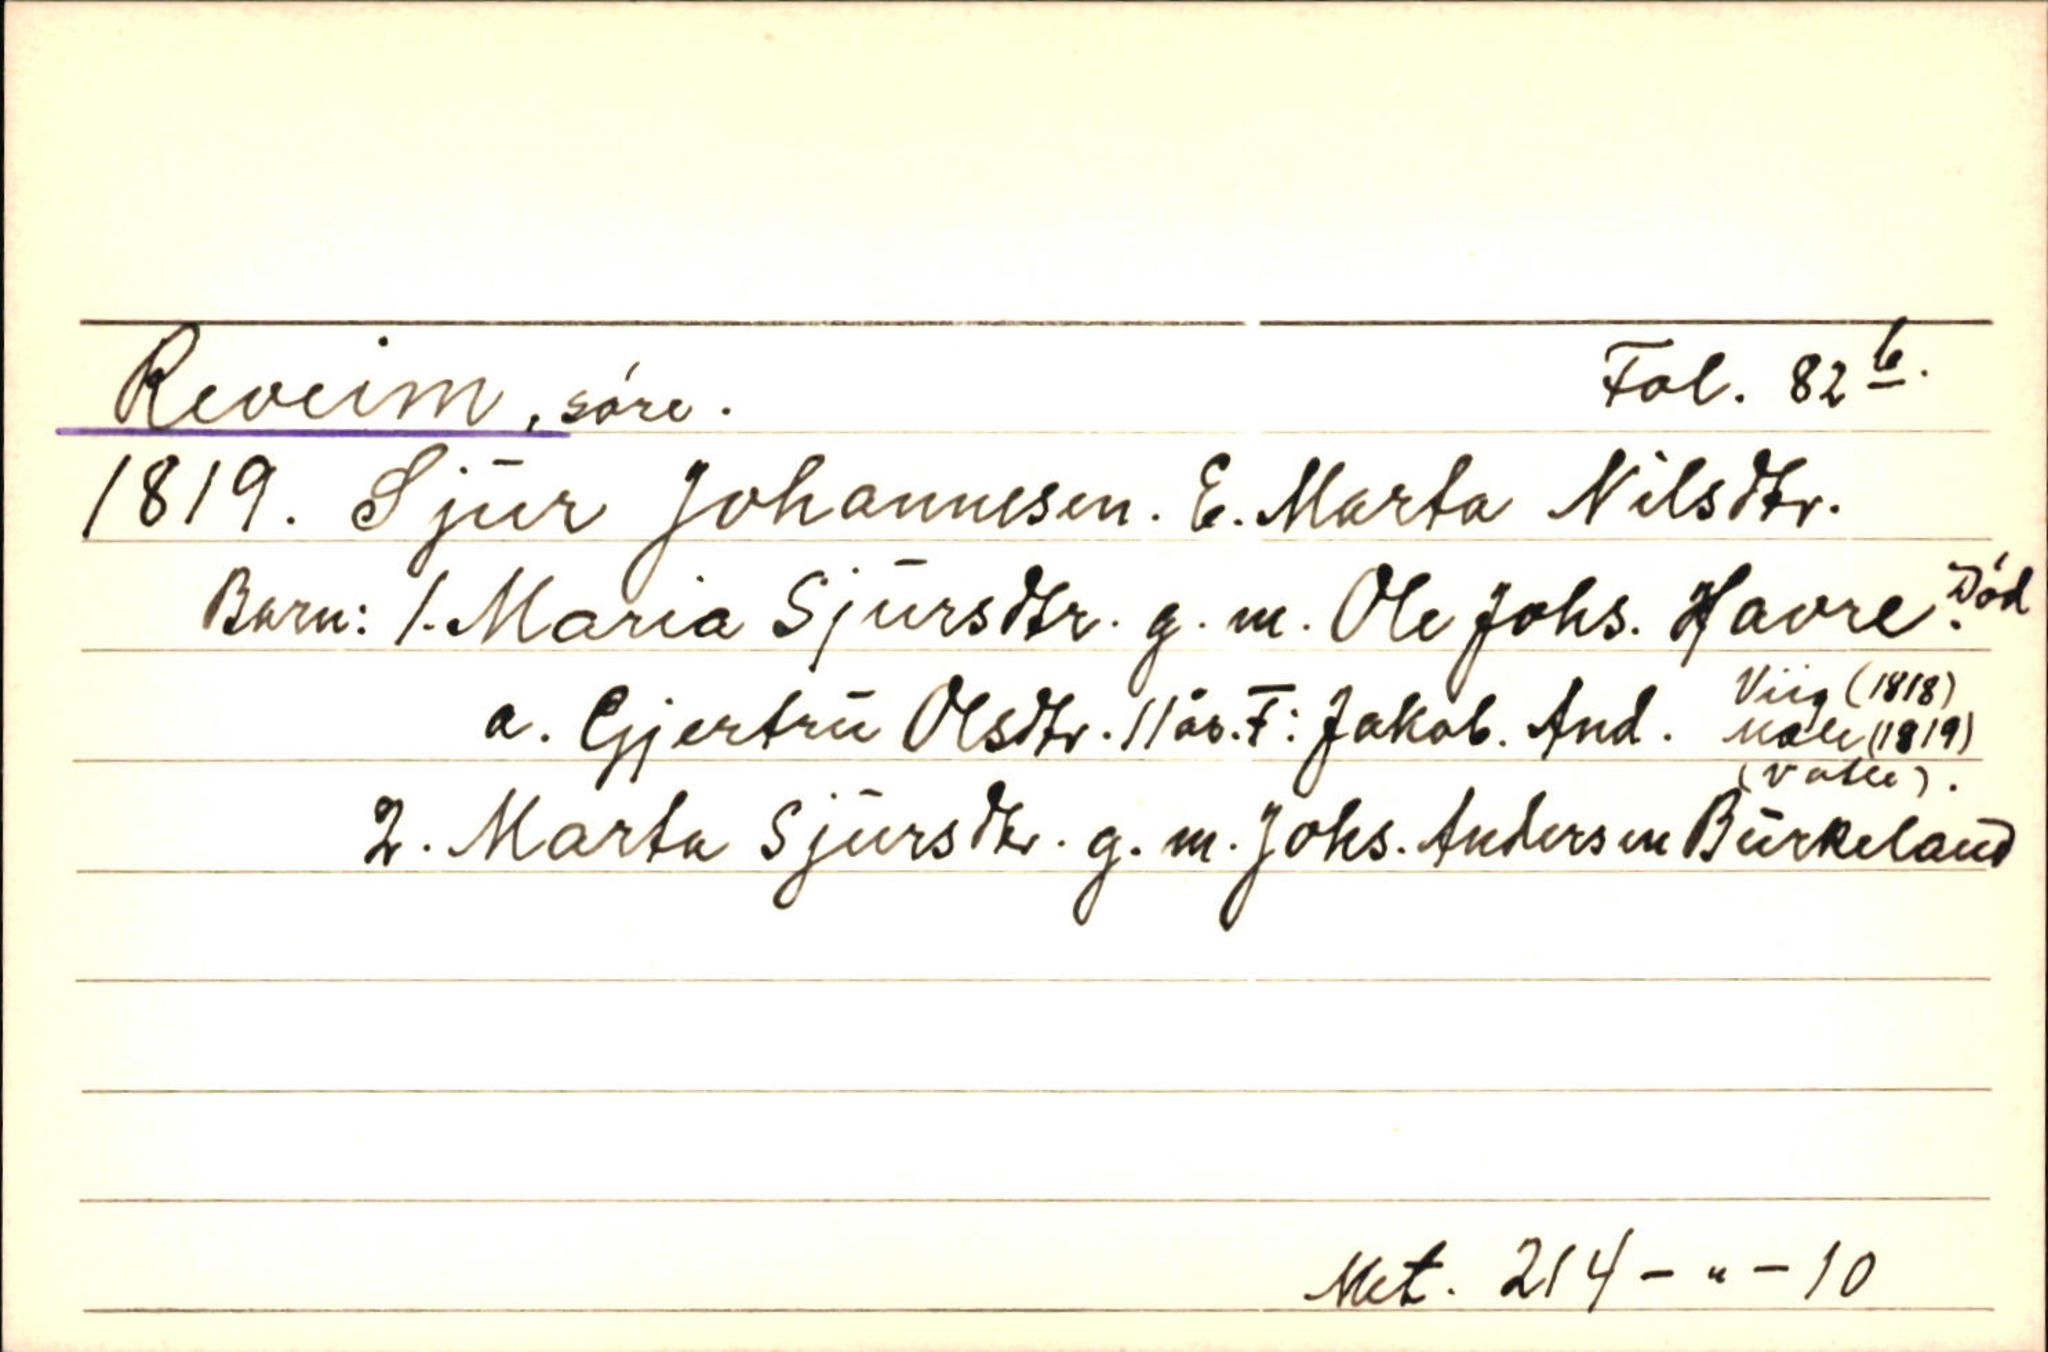 Reveim, søre. Fol. 82 b.
1819. Sjūr Johannesen. E. Marta Nilsdtr.
Barn: 1. Maria Sjūrsdtr. g. m. Ole Johs. Havre. Død
a. Gjertrū Olsdtr. 11 år. F: Jakob. And. Viig (1818)
(1819)
2. Marta Sjūrsdtr. g. m. Johs. Andersen Būrkeland
Met. 214 - " - 10